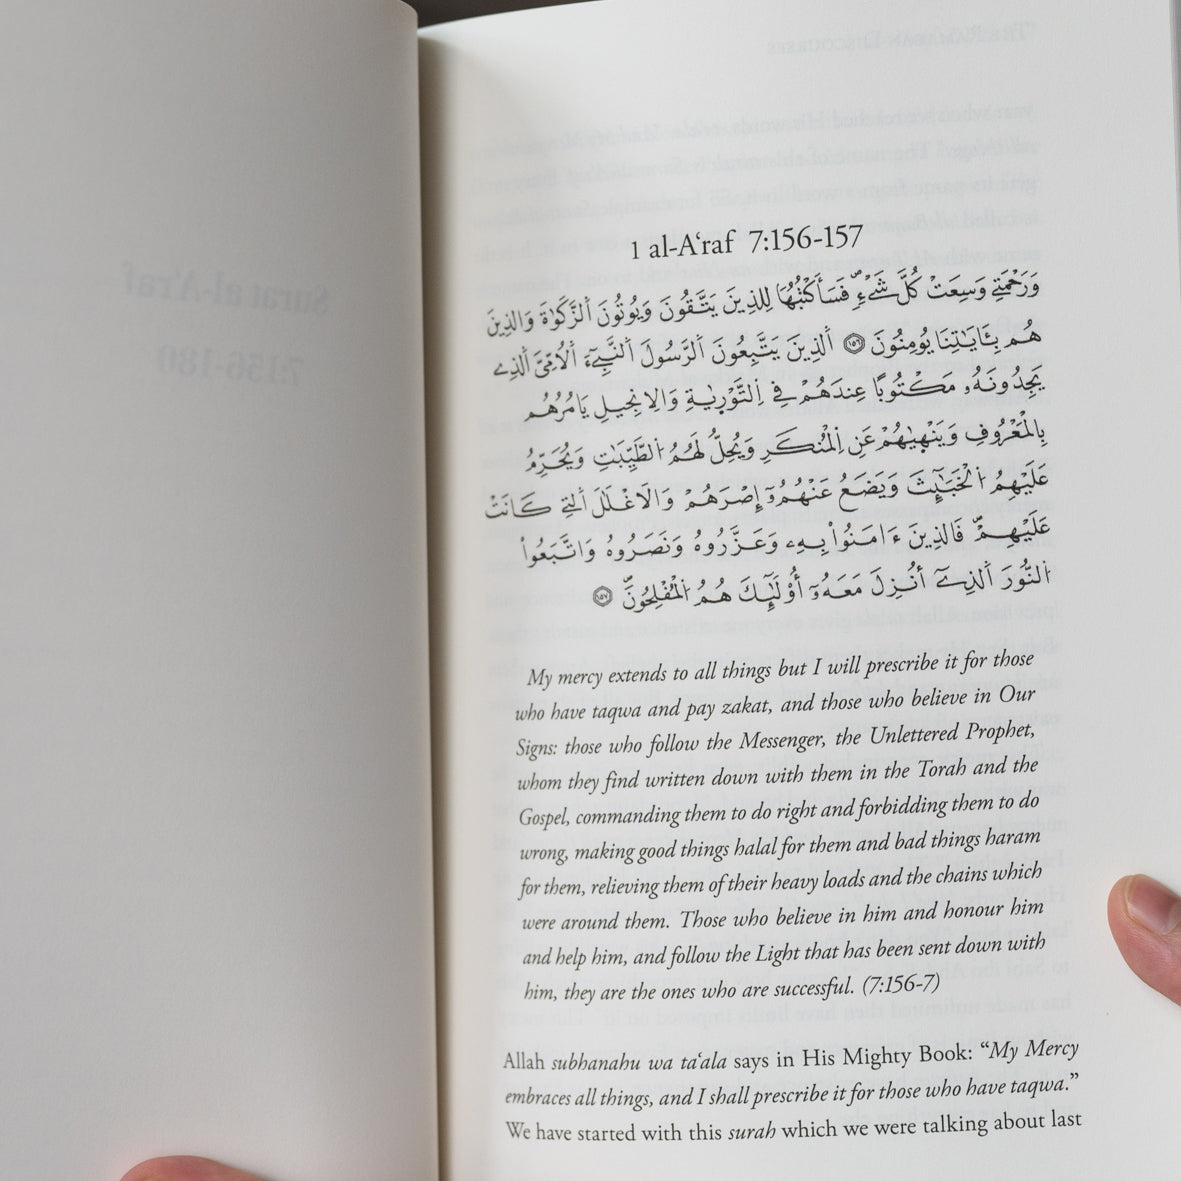 1 al-A‘raf 7:156-157
وَرَحْمَتِے وَسِعَتْ كُلَّ شَےْءٍ فَسَأَكْتُبُهَا لِلذِينَ يَتَّقُونَ وَيُوتُونَ اَلزَّكَوٰةَ وَالذِينَ
هُم بِـَٔايَٰتِنَا يُومِنُونَ ١٥٦ اَلذِينَ يَتَّبِعُونَ اَلرَّسُولَ اَلنَّبِےٓءَ اَلُامِّيَّ اَلذِے
يَجِدُونَهُۥ مَكْتُوباً عِندَهُمْ فِے اِلتَّوْرِيٰةِ وَالِانجِيلِ يَامُرُهُم
بِالْمَعْرُوفِ وَيَنْهِيٰهُمْ عَنِ اِلْمُنكَرِ وَيُحِلُّ لَهُمُ اُلطَّيِّبَٰتِ وَيُحَرِّمُ
عَلَيْهِمُ اُلْخَبَٰٓئِثَ وَيَضَعُ عَنْهُمُۥٓ إِصْرَهُمْ وَالَاغْلَٰلَ اَلتِے كَانَتْ
عَلَيْهِمْ فَالذِينَ ءَامَنُواْ بِهِۦ وَعَزَّرُوهُ وَنَصَرُوهُ وَاتَّبَعُواْ
اُلنُّورَ اَلذِےٓ أُنزِلَ مَعَهُۥٓ أُوْلَٰٓئِكَ هُمُ اُلْمُفْلِحُونَ ١٥٧
My mercy extends to all things but I will prescribe it for those
who have taqwa and pay zakat, and those who believe in Our
Signs: those who follow the Messenger, the Unlettered Prophet,
whom they find written down with them in the Torah and the
Gospel, commanding them to do right and forbidding them to do
wrong, making good things halal for them and bad things haram
for them, relieving them of their heavy loads and the chains which
were around them. Those who believe in him and honour him
and help him, and follow the Light that has been sent down with
him, they are the ones who are successful. (7:156-7)
Allah subhanahu wa ta‘ala says in His Mighty Book: “My Mercy
embraces all things, and I shall prescribe it for those who have taqwa.”
We have started with this surah which we were talking about last